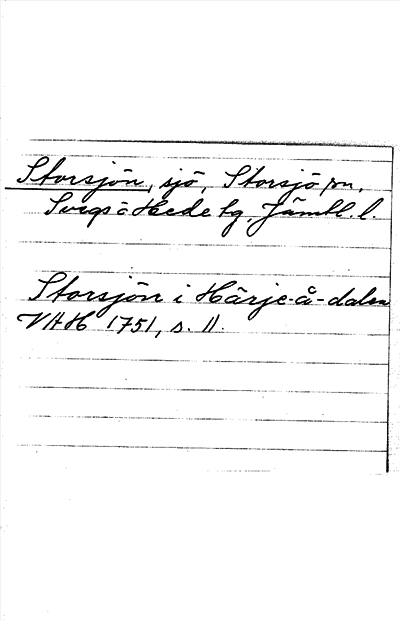 Storsjön, sjö, Storsjö sn,
Svegs o Hede tg, Jämtl. l.
Storsjön i Härje-å-dalen
VAH 1751, s. 11.